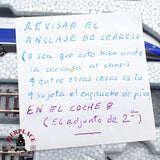 REVISAR EL
ANCLAJE DE CERROJO
(O sea que esté bien unida
la carcasa al chasis
q entre otras cosas es lo
q sujeta el enganche de pico
EN EL COCHE 8
(El adjunto de 2ªⁿ)